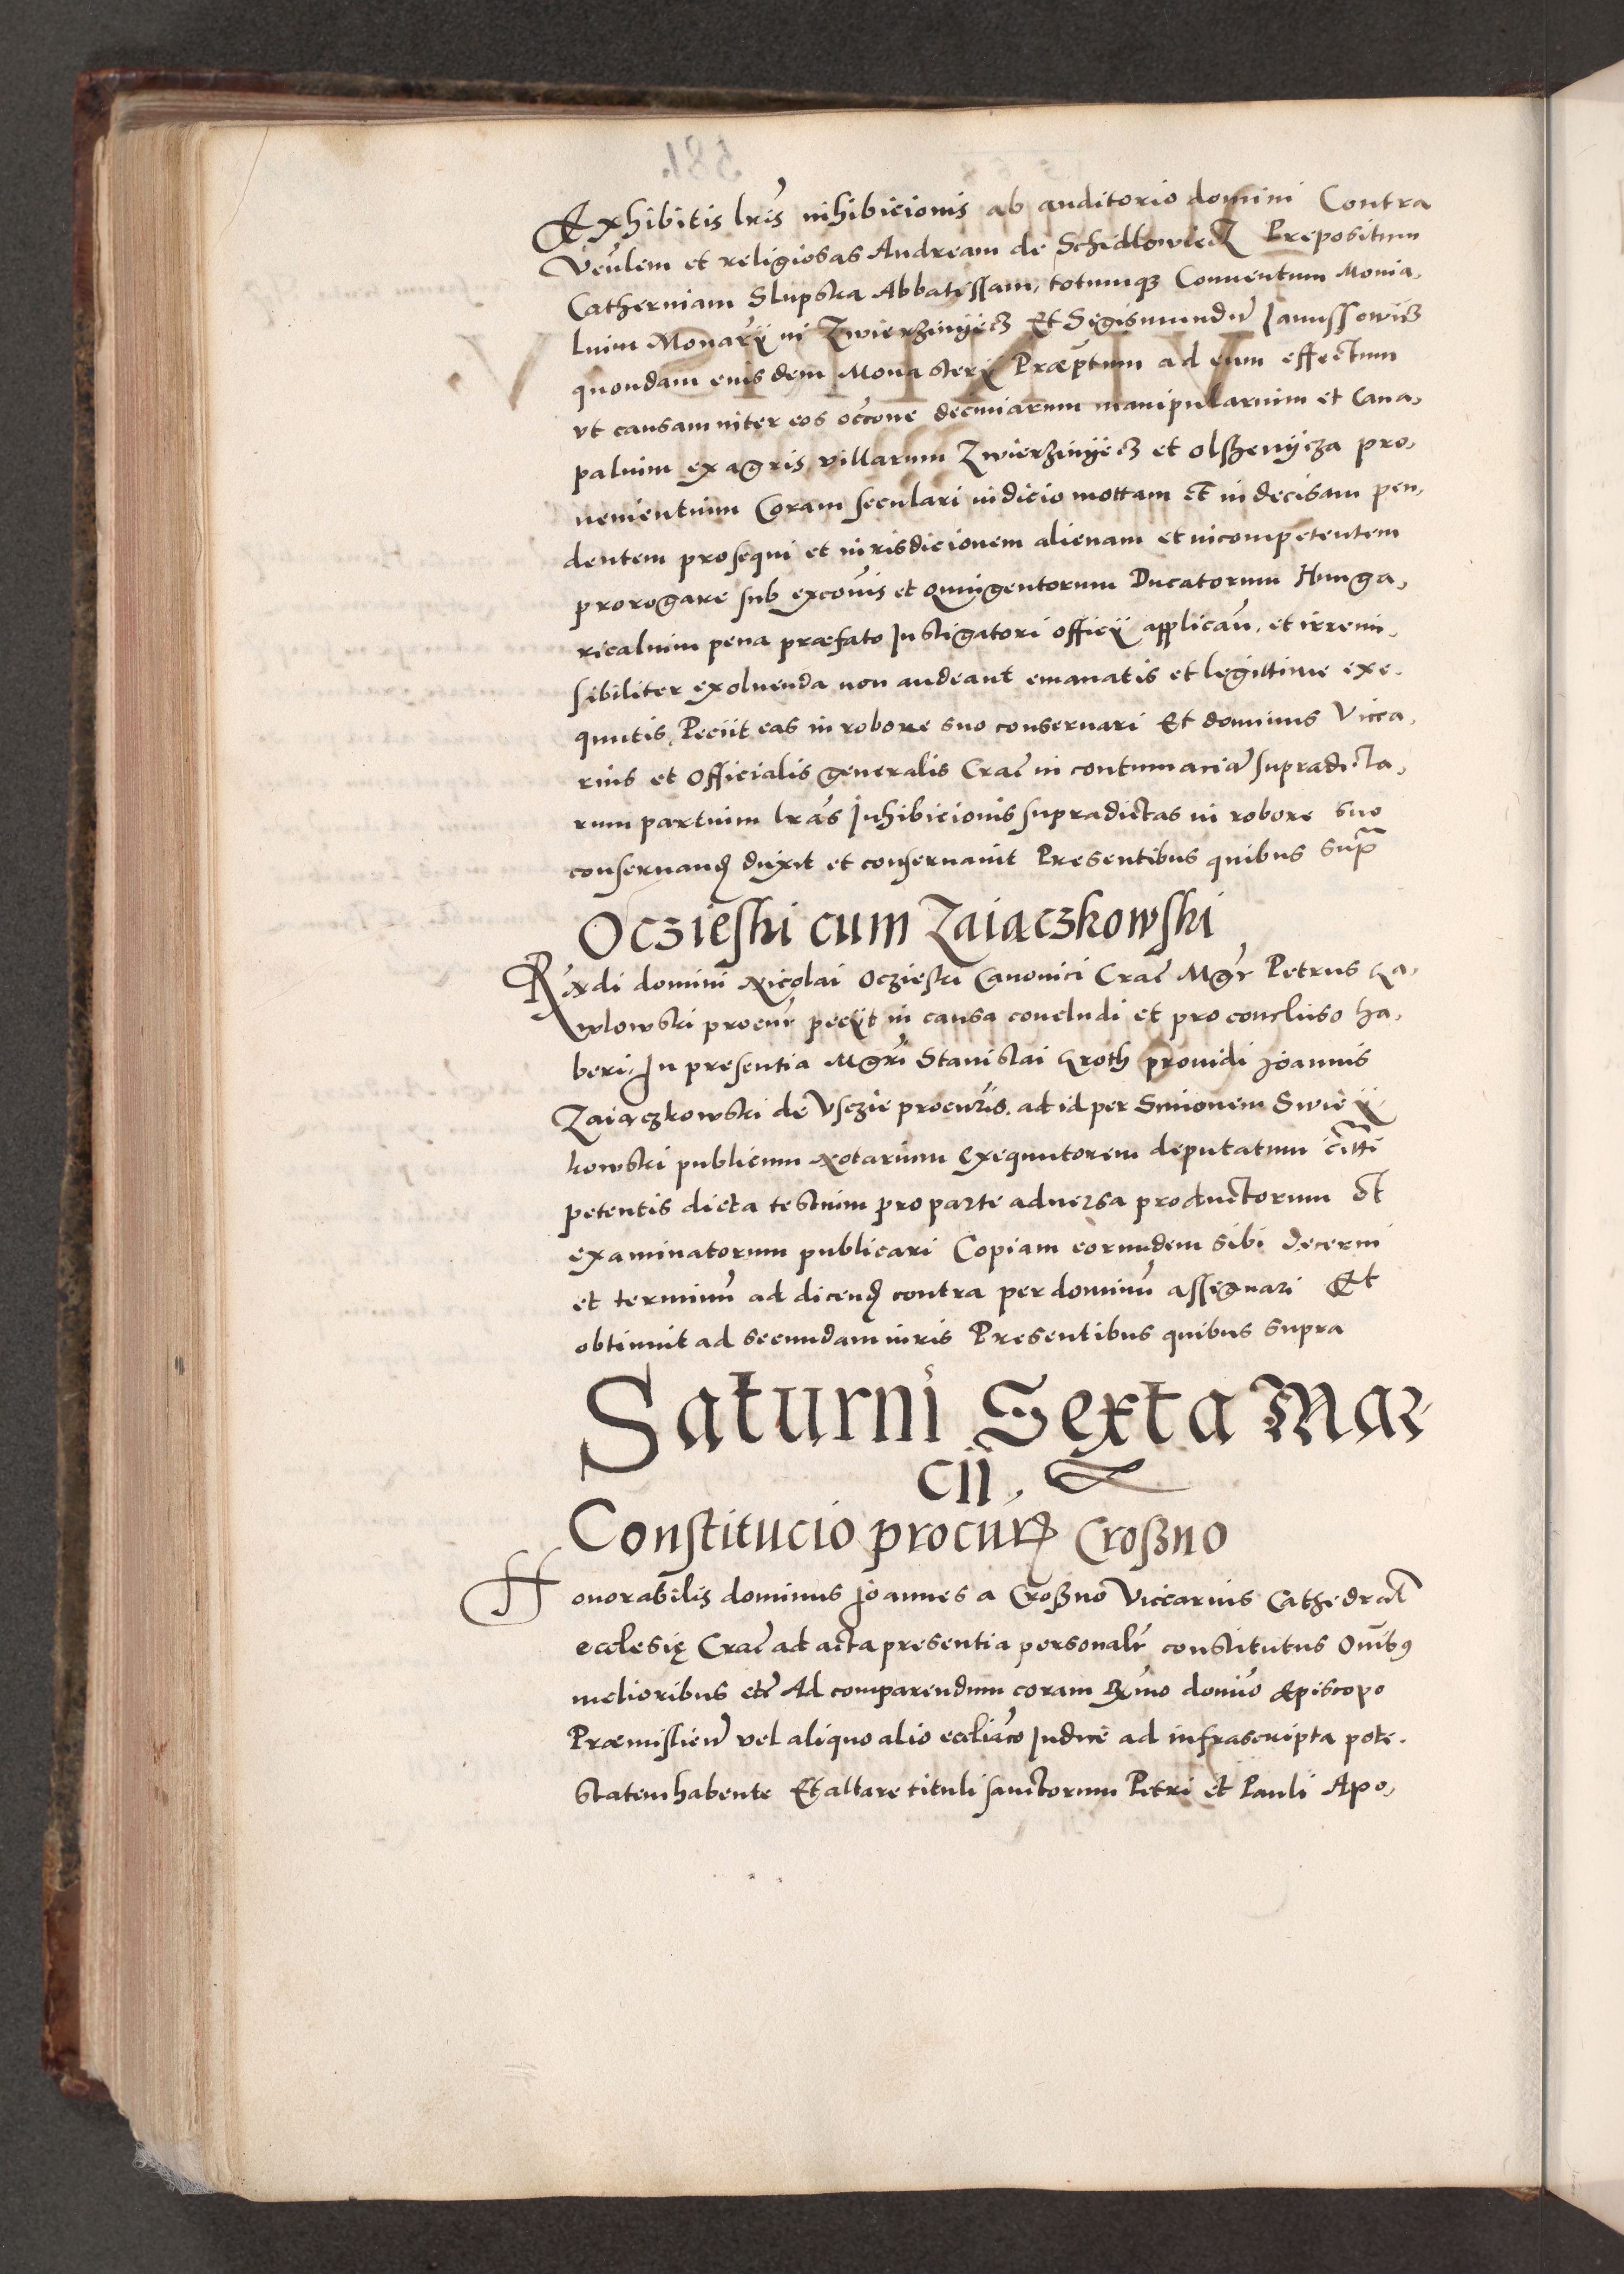 Exhibitis lr̃is inhibicionis ab auditorio domini Contra
Veñlem et religiosas Andream de Schidlowiecz Prepositum
Catherinam Slupska Abbatissam, totumq3 Conuentum Monia,
lium Monarÿ in Zwierzinÿecz Et Sigismundũ Janussowicz
quondam eiusdem Monasterÿ Præp̃tum ad eum effectum
vt causam inter eos occõne decimarum manipularium et Cana,
palium ex agris villarum Zwierzinÿecz et olszenÿcza pro,
uenientium Coram seculari iudicio mottam et indecisam pen,
dentem prosequi et iurisdicionem alienam et incompetentem
prorogare sub excõis et quingentorum Ducatorum Hunga,
ricalium pena præfato Instigatori officÿ applicañ, et irremi,
sibiliter exoluenda non audeant emanatis et legittime exe,
quutis, Peciit eas in robore suo conseruari Et dominus Vicca,
rius et Officialis generalis Crac̃ in contumaciã supradicta,
rum partium lrãs Inhibicionis supradictas in robore suo
conseruand duxit et conseruauit Presentibus quibus sup̃
Oczieski cum Zaiaczkowski
Rx̃di domini Nicolai Oczieski Canonici Crac̃ Mgr̃ Petrus Ga,
wlowski procur̃ peciit in causa concludi et pro concluso ha,
beri, In presentia Mgrĩ Stanislai Groth prouidi Joannis
Zaiaczkowski de Vsczie procurĩs. ad id per Simonem Swie
kowski publicum Notarium Exequutorem deputatum
petentis dicta testium pro parte aduersa productorum et
examinatorum publicari Copiam eorundem sibi decerni
et terminũ ad dicend contra per dominũ assignari Et
obtinuit ad secundam iuris Presentibus quibus supra
Saturni Sexta Mar
cii,
Constitucio procur Croßno
Honorabilis dominus Joannes a Croßno Viccarius Cathedral
ecclesię Crac̃ ad acta presentia personalr̃ constitutus Om̃ib9
melioribus etc̃ Ad comparendum coram Rx̃mo domĩo Episcopo
Præmislien̄ vel aliquo alio eccliãco Judice ad infrascripta pote,
statem habente Et altare tituli sanctorum Petri et Pauli Apo,